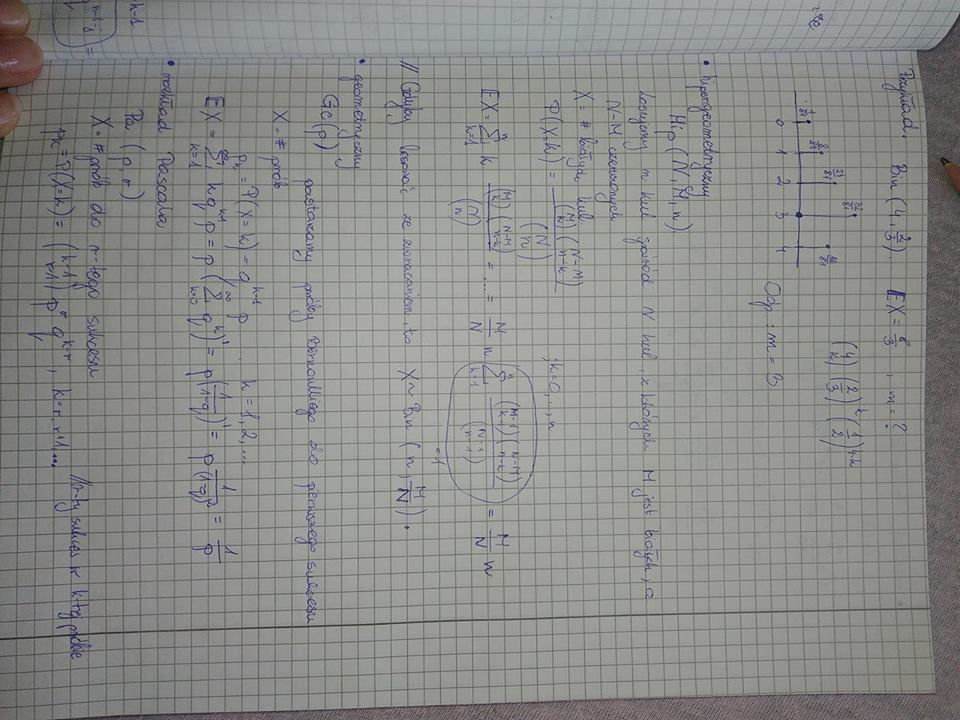 Przykład. Bin (4, 2/3). EX = 8/3 , m = ?
(4 k) (2/3)^k (1/2)^{4-k}
1/81 8/81 24/81 32/81 16/81
0 1 2 3 4
Odp : m = 3
• hipergeometryczny
Hip (N, M, n)
Losujemy n kul spośród N kul, z których M jest białych, a
N-M czerwonych
X = # białych kul.
P(X=k) = (M k)(N-M n-k) / (N n) ; k=0,...,n
EX = ∑_{k=1}^{n} k (M k)(N-M n-k) / (N n) = ... = M/N n ∑_{k=1}^{n} (M-1 k-1)(N-M n-k) / (N-1 n-1) = M/N n
=1
// Gdyby losować ze zwracaniem, to X ~ Bin (n, M/N).
• geometryczny
Ge(p) powtarzamy próby Bernoulliego do pierwszego sukcesu
X = # prób
p_k = P(X=k) = q^{k-1} p k = 1, 2, ...
EX = ∑_{k=1}^{∞} k q^{k-1} p = p (∑_{k=0}^{∞} q^k)' = p (1/(1-q))' = p 1/(1-q)^2 = 1/p
• rozkład Pascala
Pa (p, r)
X = # prób do r-tego sukcesu
p_k = P(X=k) = (k-1 r-1) p^r q^{k-r} , k = r, r+1, ... // r-ty sukces w k-tej próbie